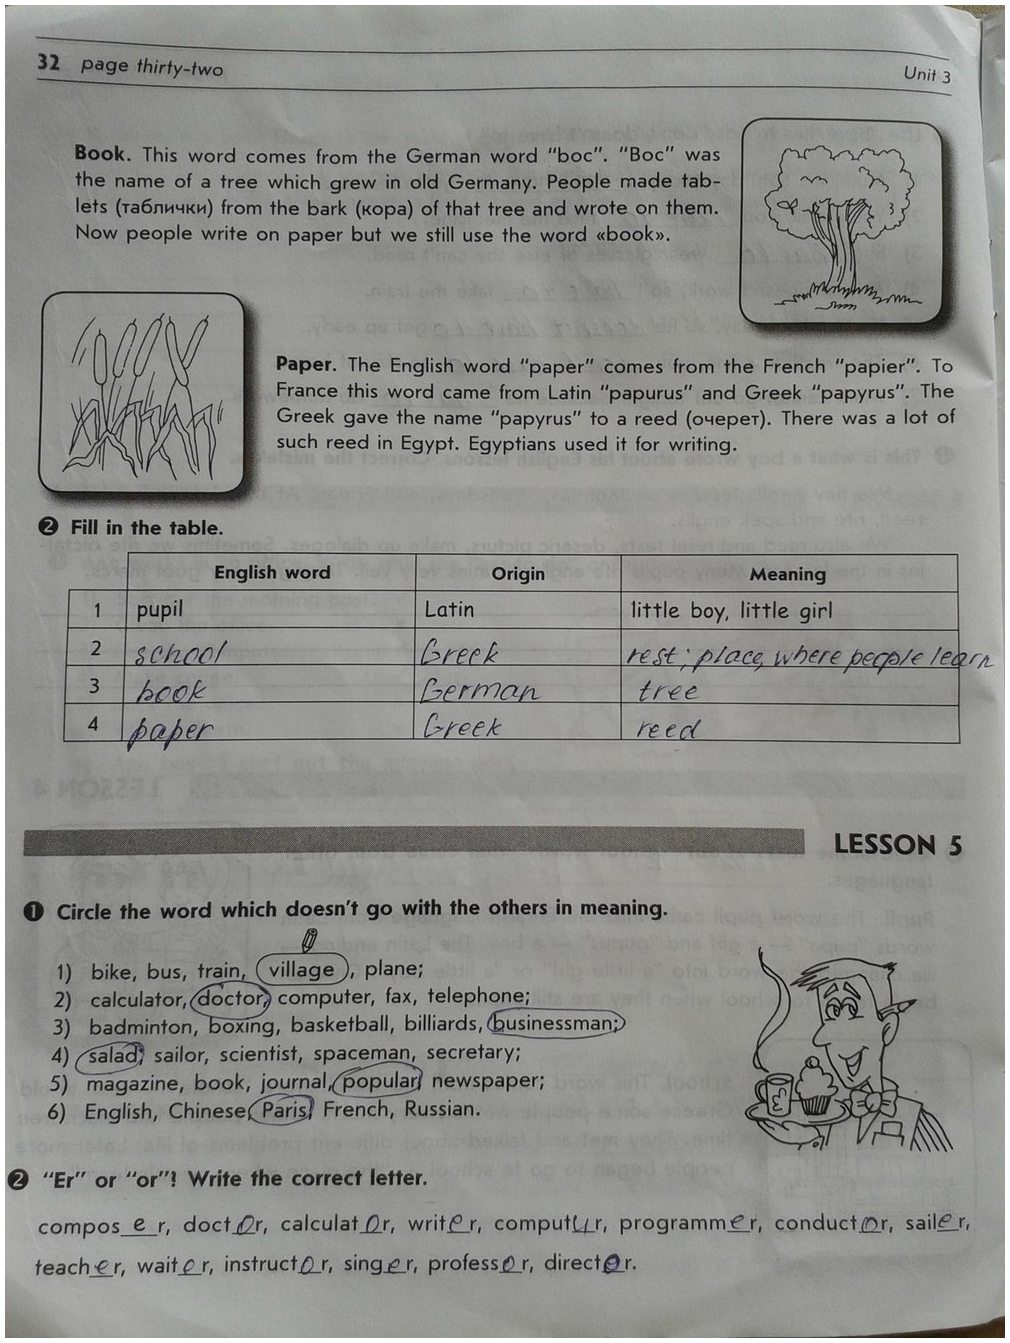 32 page thirty-two
Unit 3
Book. This word comes from the German word "boc". "Boc" was
the name of a tree which grew in old Germany. People made tab-
lets (таблички) from the bark (кора) of that tree and wrote on them.
Now people write on paper but we still use the word «book».
Paper. The English word "paper" comes from the French "papier". To
France this word came from Latin "papurus" and Greek "papyrus". The
Greek gave the name "papyrus" to a reed (очерет). There was a lot of
such reed in Egypt. Egyptians used it for writing.
2 Fill in the table.
English word Origin Meaning
1 pupil Latin little boy, little girl
2 school Greek rest; place, where people learn
3 book German tree
4 paper Greek reed
LESSON 5
1 Circle the word which doesn't go with the others in meaning.
1) bike, bus, train, village, plane;
2) calculator, doctor, computer, fax, telephone;
3) badminton, boxing, basketball, billiards, businessman;
4) salad, sailor, scientist, spaceman, secretary;
5) magazine, book, journal, popular, newspaper;
6) English, Chinese, Paris, French, Russian.
2 "Er" or "or"! Write the correct letter.
compos e r, doctor, calculator, writer, computer, programmer, conductor, sailer,
teacher, waiter, instructor, singer, professor, director.